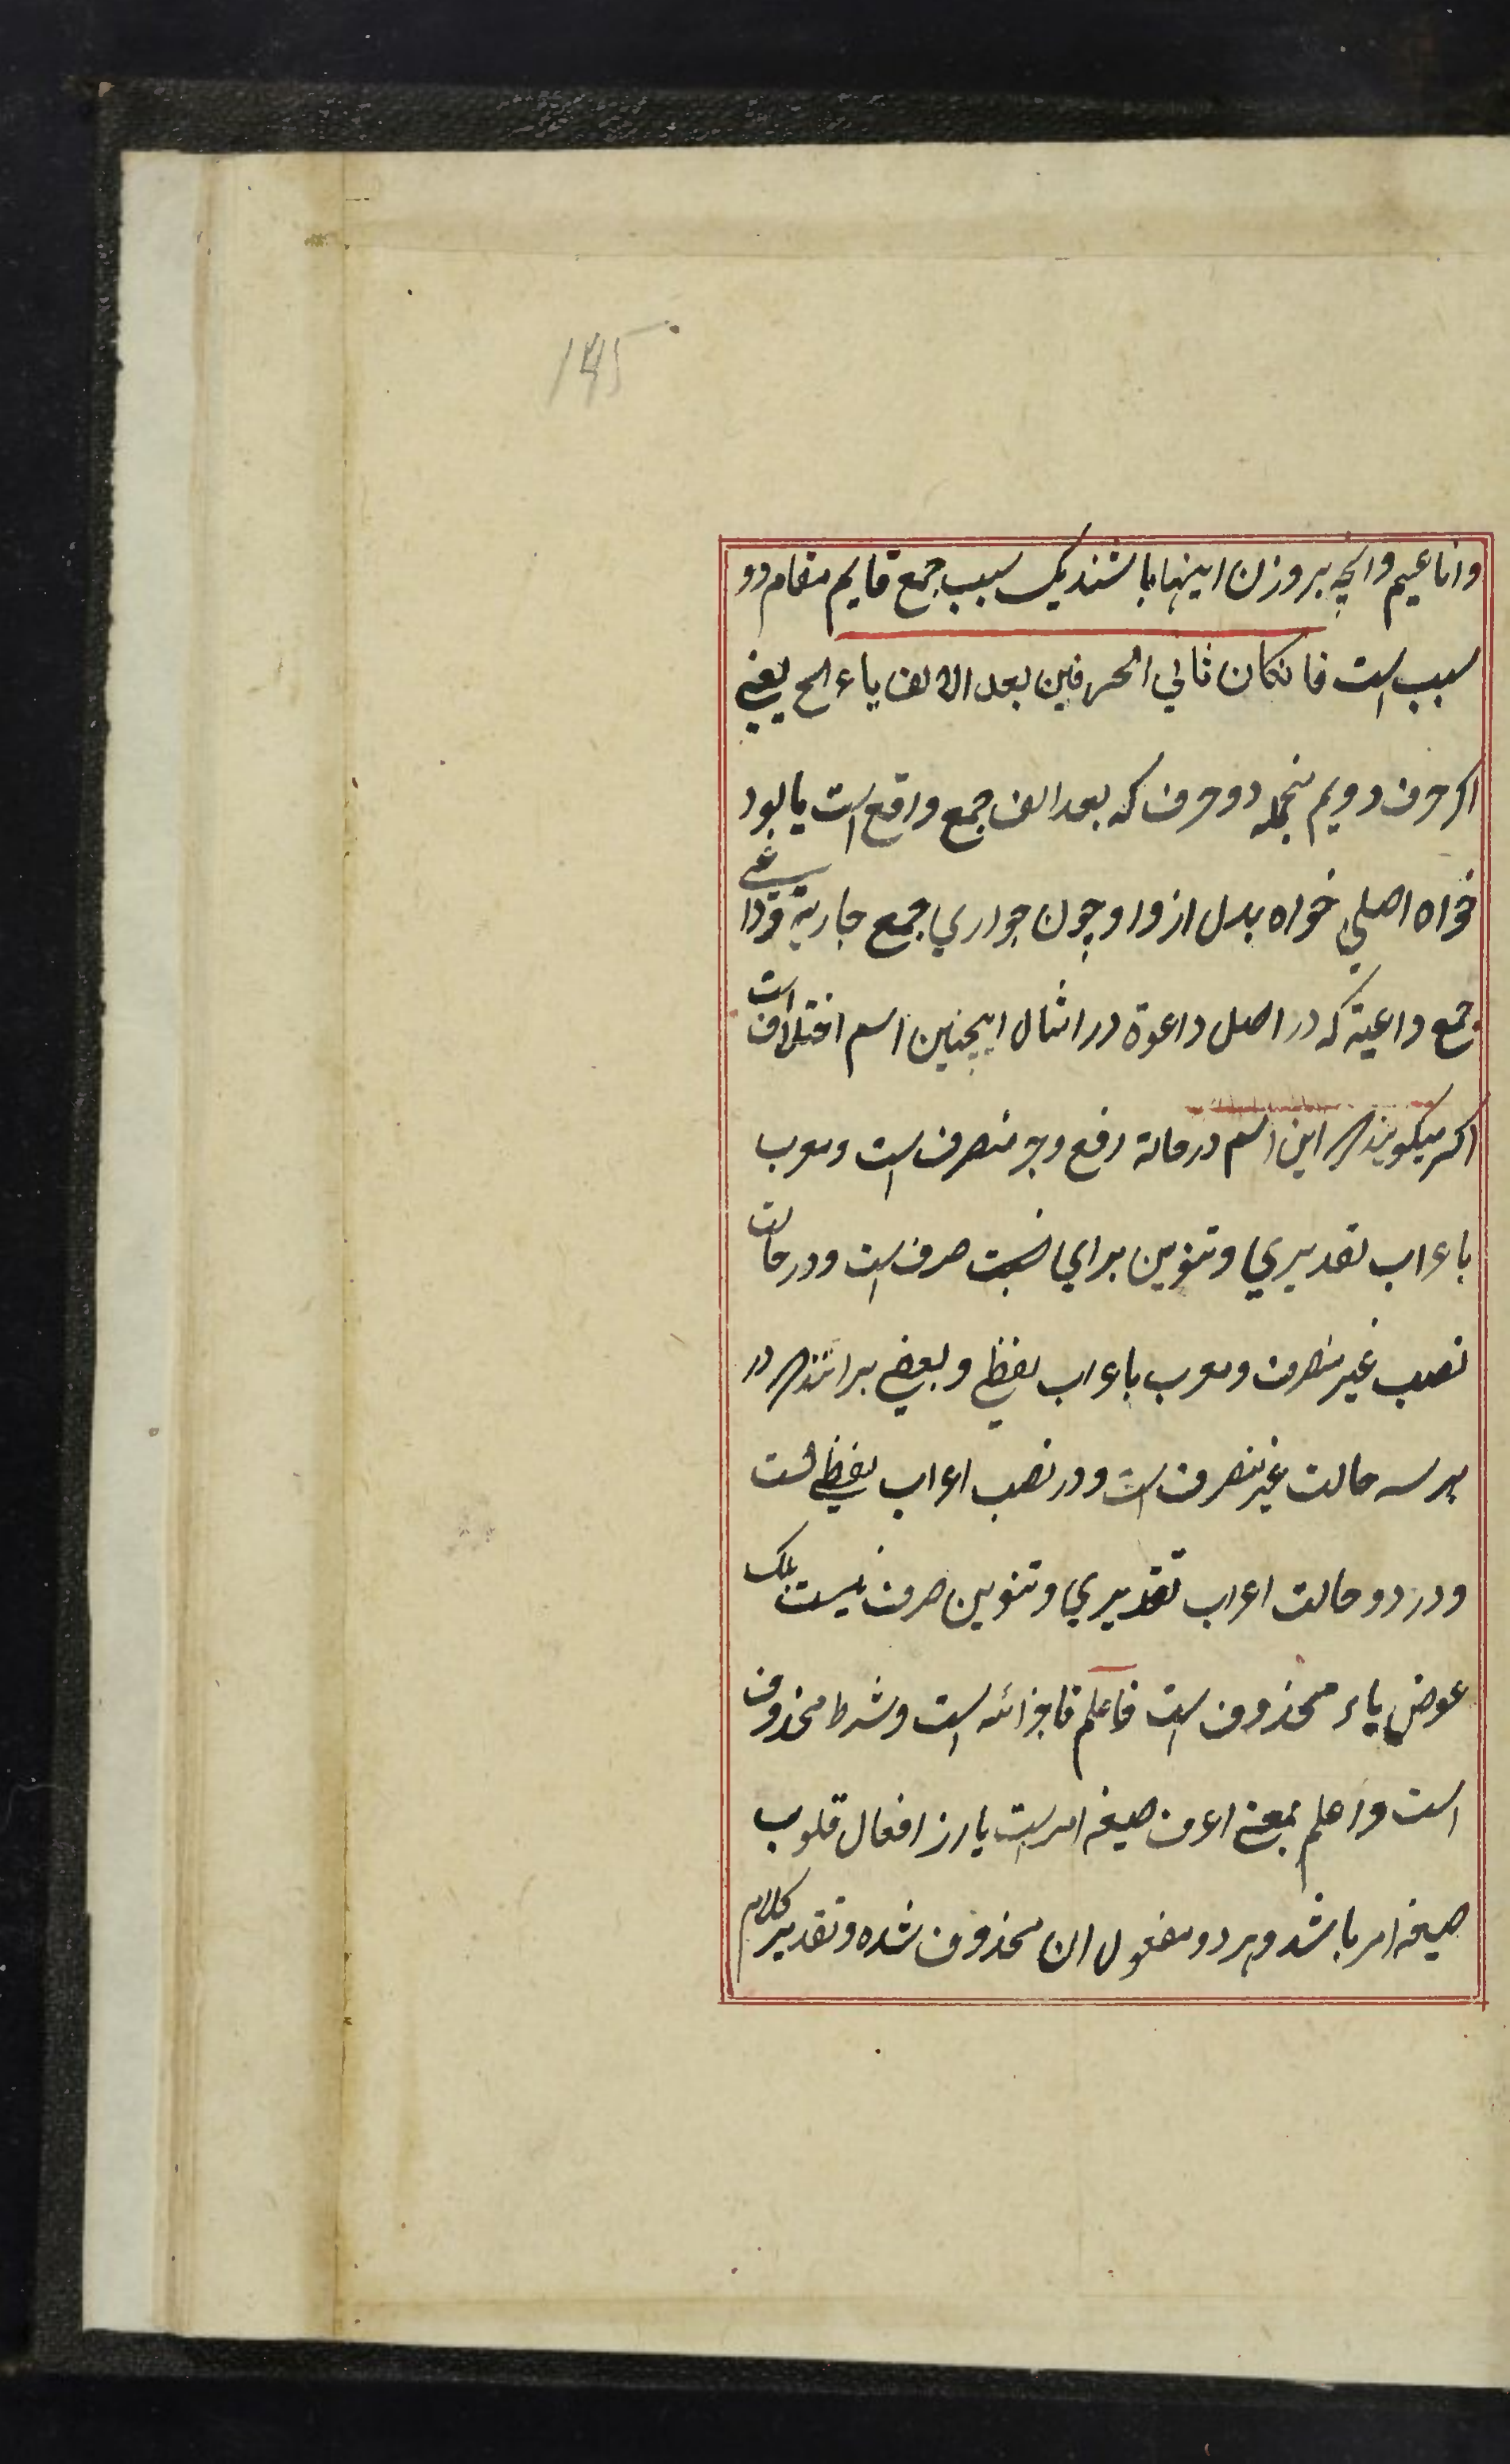 145
واناعیم وانچه بروزن اینها باشند یک سبب جمع قایم مقام دو
سبب است فانکان ثانی الحرفین بعد الالف یاء الخ یعنی
اکر حرف دویم منجمله دو حرف که بعد الف جمع واقع است یا بود
خواه اصلی خواه بدل از واو چون جواری جمع جاریة ودواعی
جمع داعیة که در اصل داعوة در امثال اینچنین اسم اختلاف است
اکثر میکویند که این اسم در حالة رفع وجر منصرف است ومعرب
باعراب تقدیری وتنوین برای صرف است ودر حالت
نصب غیر منصرف ومعرب باعراب لفظی وبعضی برانند که در
هر سه حالت غیر منصرف است ودر نصب اعراب لفظی است
ودر دو حالت اعراب تقدیری وتنوین صرف نیست بلکه
عوض یاء محذوف است فاعلم فا جزائه است وشرط محذوف
است واعلم بمعنی اعرف صیغه امر است یا از افعال قلوب
صیغه امر باشد وهر دو مفعول ان محذوف شده وتقدیر کلام